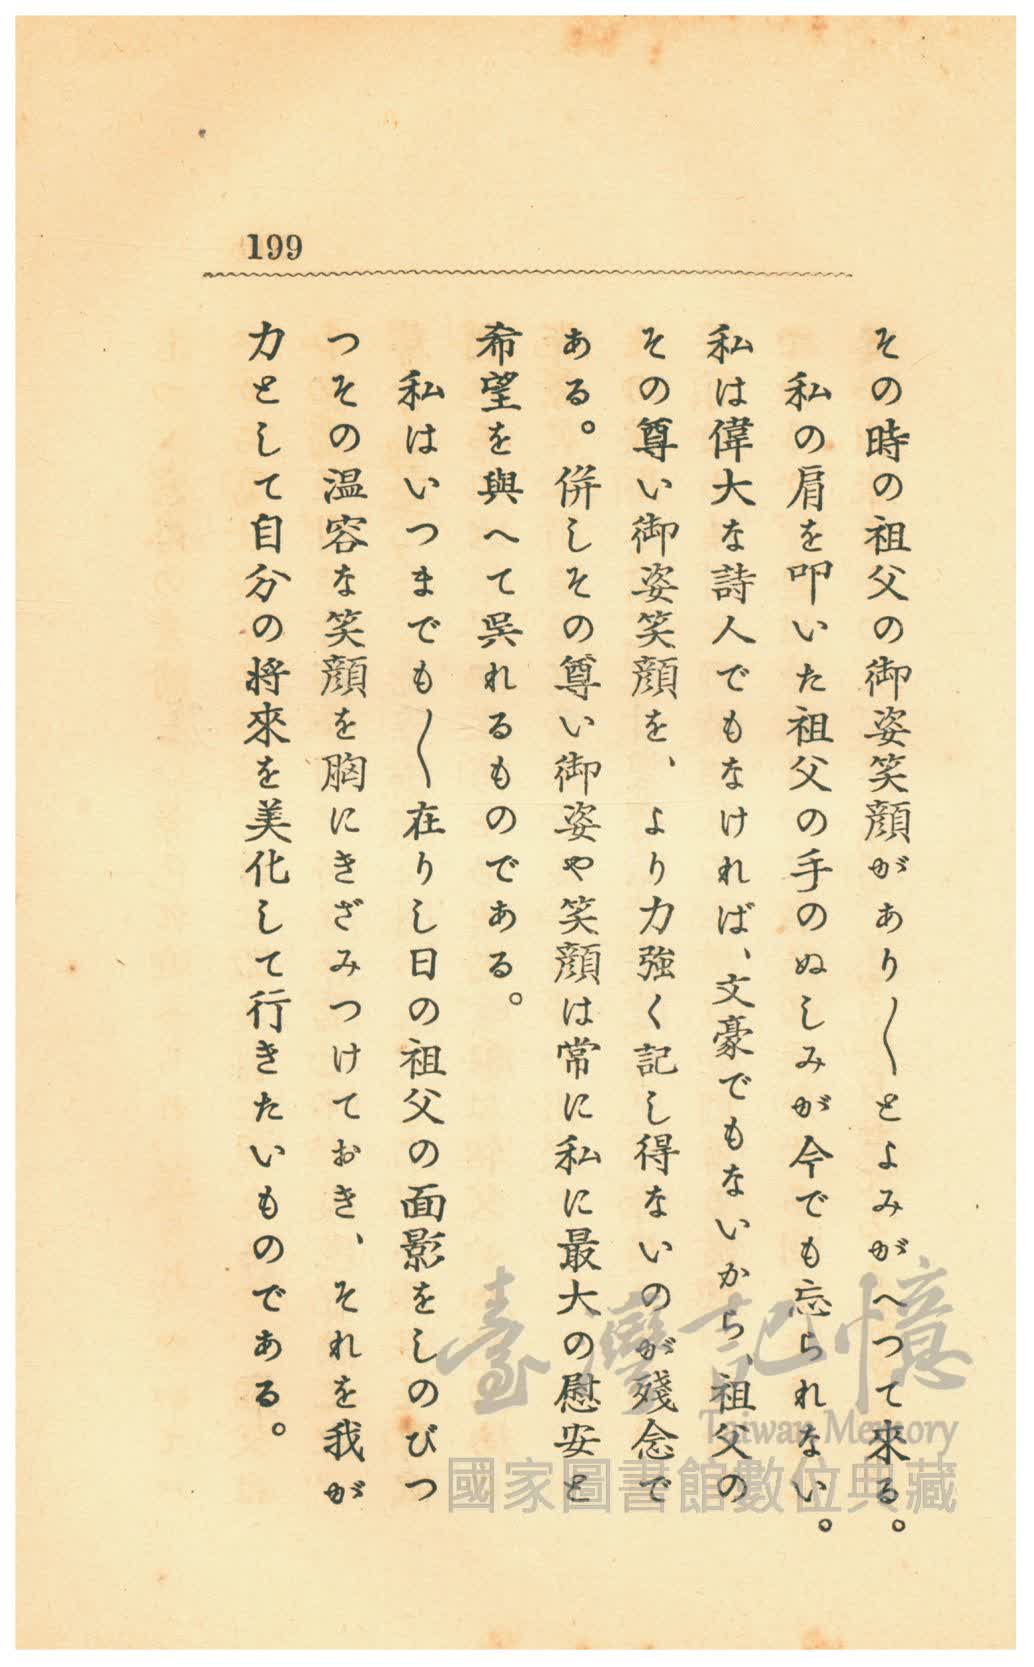 199
その時の祖父の御姿笑顔があり〱とよみがへつて來る。
私の肩を叩いた祖父の手のぬしみが今でも忘られない。
私は偉大な詩人でもなければ、文豪でもないから、祖父の
その尊い御姿笑顔を、より力強く記し得ないのが殘念で
ある。併しその尊い御姿や笑顔は常に私に最大の慰安と
希望を與へて呉れるものである。
私はいつまでも〱在りし日の祖父の面影をしのびつ
つその温容な笑顔を胸にきざみつけておき、それを我が
力として自分の将來を美化して行きたいものである。
臺灣記憶
Taiwan Memory
國家圖書館數位典藏